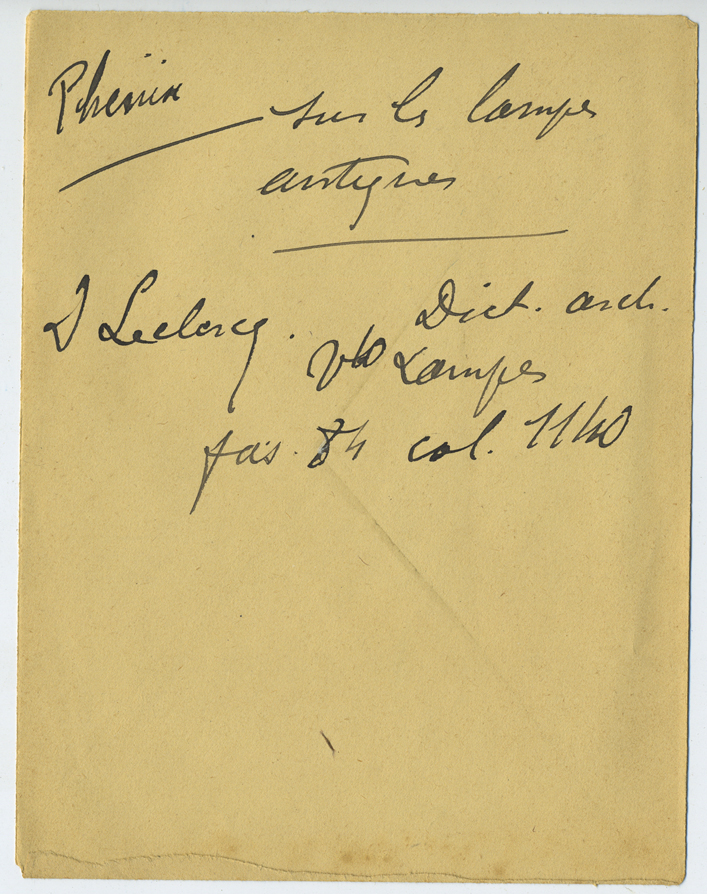 Phénix sur les lampes
antiques
D Leclercq. Dict. arch.
vbo Lampes
fas. 84 col. 1140